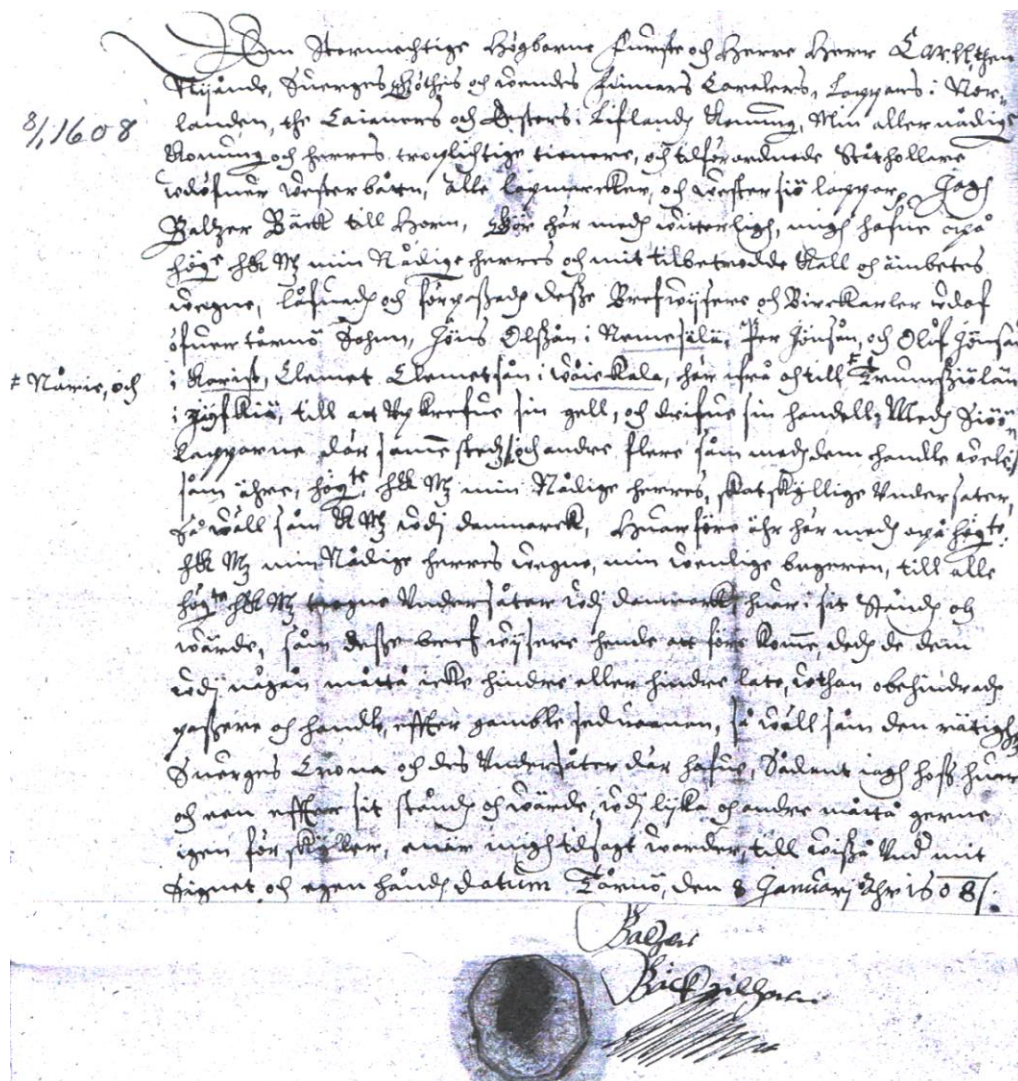 Den Stormechtige Högborne Furste och Herre Herr Carll then
Nijånde, Suerges Göthes och Wendes Finnars Carelers, Lappars i Nor-
landen, the Caianers och Esters i Lifland Konung, Min aller nådige
8/1 1608
Konung och herres troplichtige tienere, och tilförordnede Ståthollare
udöfuer Wester båtn, alle lapmarcker, och Wester siö lappar, Jagh
Baltzer Bäck till Horn, Giör här medh witterligh, migh hafue opå
högte H K Mtz min Nådige herres och mit tilbetrodde kall och ämbetes
wegne, låfuadh och förpaßadh deße Brefwijsere och Birckarler udaf
öfuer tårnö Sohnn, Jöns Olßån i Nemesälä, Per Jönsån, och Oluf Jönsån
≠ Nårie, och
i Korist, Clemet Clemetsån i Wåiekala, här ifrå och till ≠ Trumsziölän
i till att Upkrefue sin gell, och drifue sin handell, Medh Siöö-
lapparne där samme stedz, och andre flere såm medh dem handle wele,
såm ähre, högte H K Mtz min Nådige herres, skatskyllige Undersåter,
så wäll såm K Mtz udj danmarck, Huarföre ähr här medh opå högte:
H K Mtz min Nådige herres wegne, min wenlige begeren, till alle
högte H K Mtz trogne Undersåter udj danmarck huar i sit Ståndh och
wärde, såm deße bref wijsere hende att före komme, dedh de dem
udj någån måtto icke hindre eller hindre late, uthan obehindradh
paßere och handle, effter gamble seduanen, så wäll såm den rätigheet
Suerges Crona och des Undersåter där hafue, Sådant iagh hoß huar
och een effter sit ståndh och wärde, udj lijka och andre måtto gerne
igen förskyller, enär migh tilsagt warder, till wißo Und mit
Signet och egen håndh datum Tårnö, den 8 Januarj Åhr 1608
Baltzer
Bäck till Horn